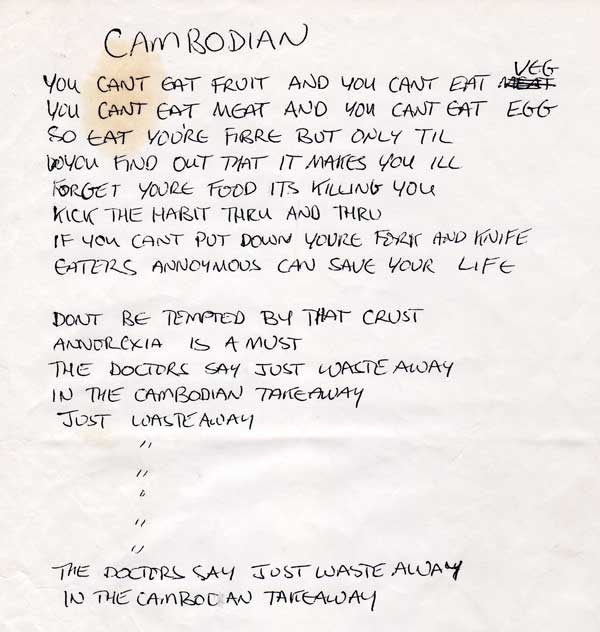 CAMBODIAN
VEG
YOU CANT EAT FRUIT AND YOU CANT EAT MEAT
YOU CANT EAT MEAT AND YOU CANT EAT EGG
SO EAT YOU'RE FIBRE BUT ONLY TIL
YOU FIND OUT THAT IT MAKES YOU ILL
FORGET YOURE FOOD ITS KILLING YOU
KICK THE HABIT THRU AND THRU
IF YOU CANT PUT DOWN YOURE FORK AND KNIFE
EATERS ANNOYMOUS CAN SAVE YOUR LIFE
DONT BE TEMPTED BY THAT CRUST
ANNOREXIA IS A MUST
THE DOCTORS SAY JUST WASTE AWAY
IN THE CAMBODIAN TAKEAWAY
JUST WASTE AWAY
"
"
"
"
"
THE DOCTORS SAY JUST WASTE AWAY
IN THE CAMBODIAN TAKEAWAY